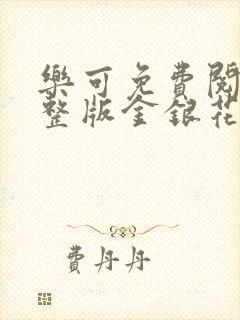 樂可免費閱
整版金銀花
費丹丹